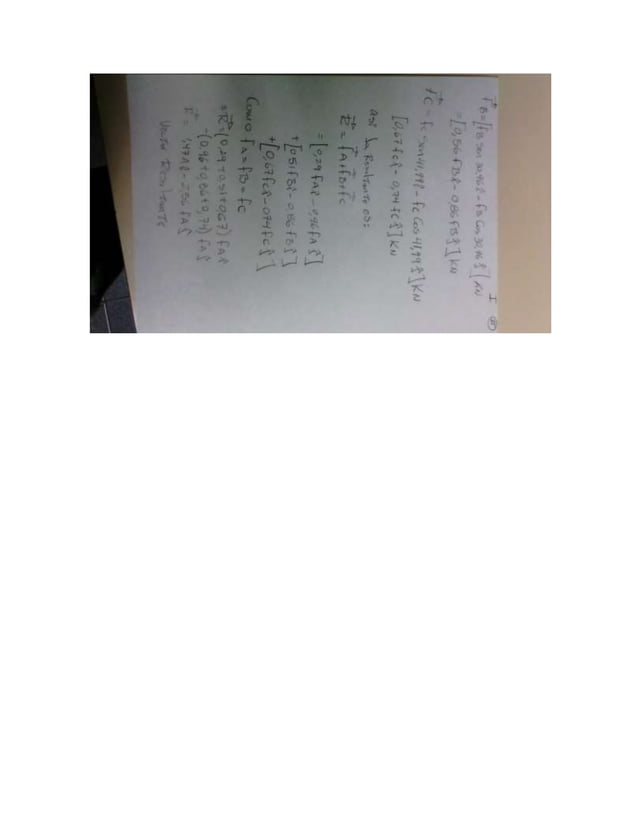 I
FB = [FB sen 30,96 î - FB Cos 30,96 ĵ] KN
= [0,516 FB î - 0,86 FB ĵ] KN
FC = FC sen 41,99 î - FC Cos 41,99 ĵ] KN
[0,67 FC î - 0,74 FC ĵ] KN
así la Resultante es:
R = FA + FB + FC
= [0,29 FA î - 0,96 FA ĵ]
+ [0,51 FB î - 0,86 FB ĵ]
+ [0,67 FC î - 0,74 FC ĵ]
Como FA = FB = FC
= R = (0,29 + 0,51 + 0,67) FA î
- (0,96 + 0,86 + 0,74) FA ĵ
R = 1,47 FA î - 2,56 FA ĵ
Resultante